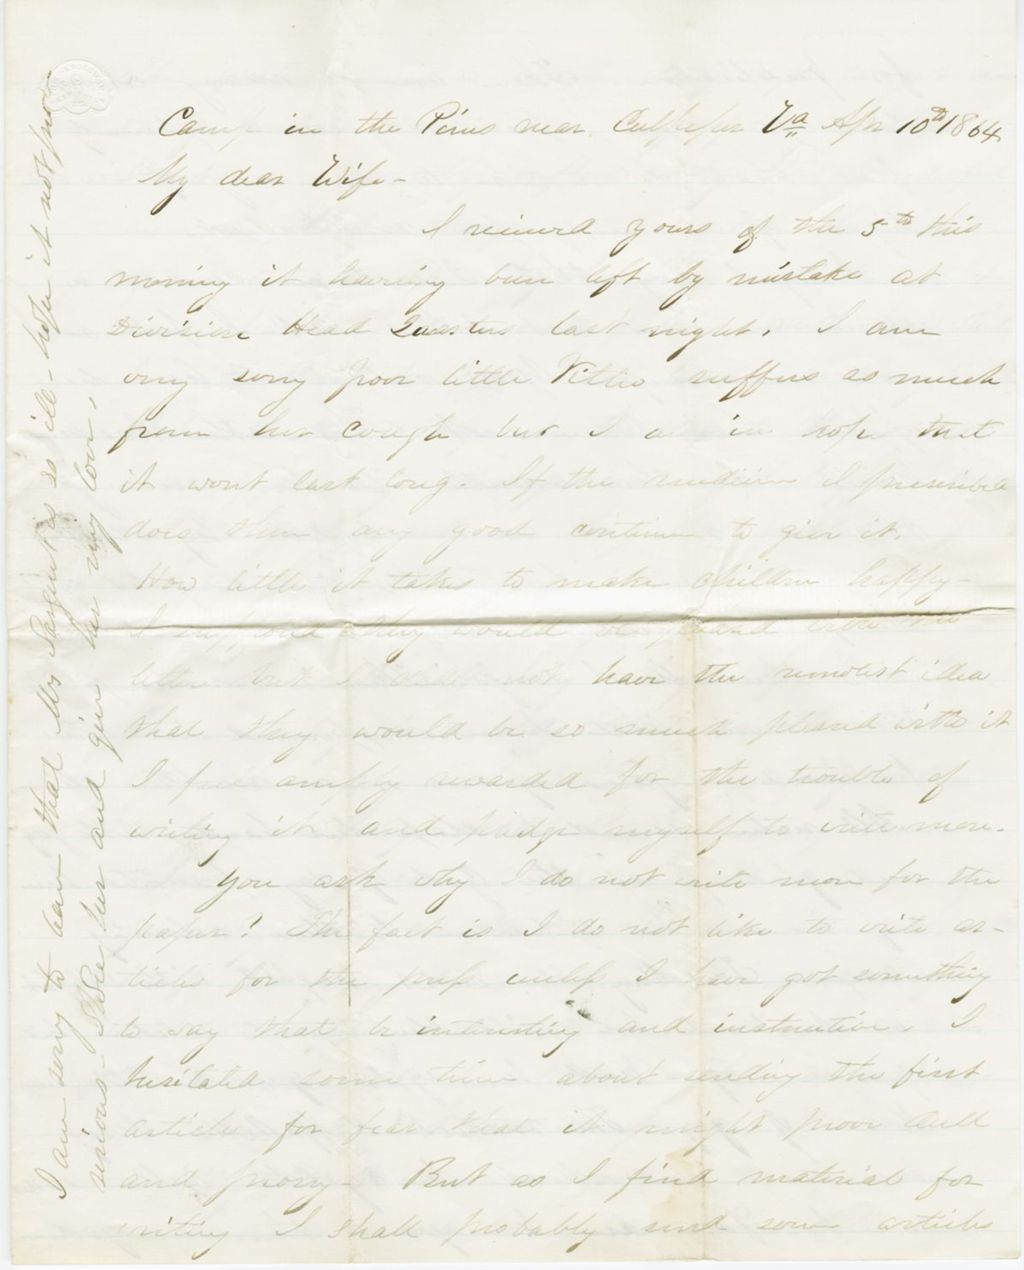 Camp in the Pines near Culpeper Va Apr 10th 1864
My dear Wife-
I received yours of the 5th this
morning it having been left by mistake at
Division Head Quarters last night. I am
very sorry poor little Willie suffers so much
from her cough but I am in hope that
it wont last long. If the medicine I prescribed
does them any good continue to give it.
How little it takes to make children happy-
I supposed they would be pleased with the
letter but I did not have the remotest idea
that they would be so much pleased with it
I feel amply rewarded for the trouble of
writing it and pledge myself to write more.
You ask why I do not write more for the
paper? The fact is I do not like to write ar-
ticles for the press unless I have got something
to say that be interesting and instructive. I
hesitated some time about sending the first
article for fear that it might proov dull
and prosy- But as I find material for
writing I shall probably send some article
I am sorry to learn that Mrs is so ill- hope it not prov
serious- See her and give her my love.